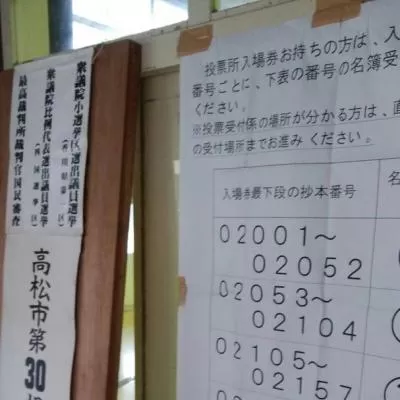 衆議院小選挙区選出議員選挙
(香川県第一区)
衆議院比例代表選出議員選挙
(四国選挙区)
最高裁判所裁判官国民審査
高松市第30投
投票所入場券お持ちの方は、入
番号ごとに、下表の番号の名簿受
ください。
※投票受付係の場所が分かる方は、直
の受付場所までお進みください。
入場券最下段の抄本番号
名
02001~
02052
02053~
02104
02105~
02157